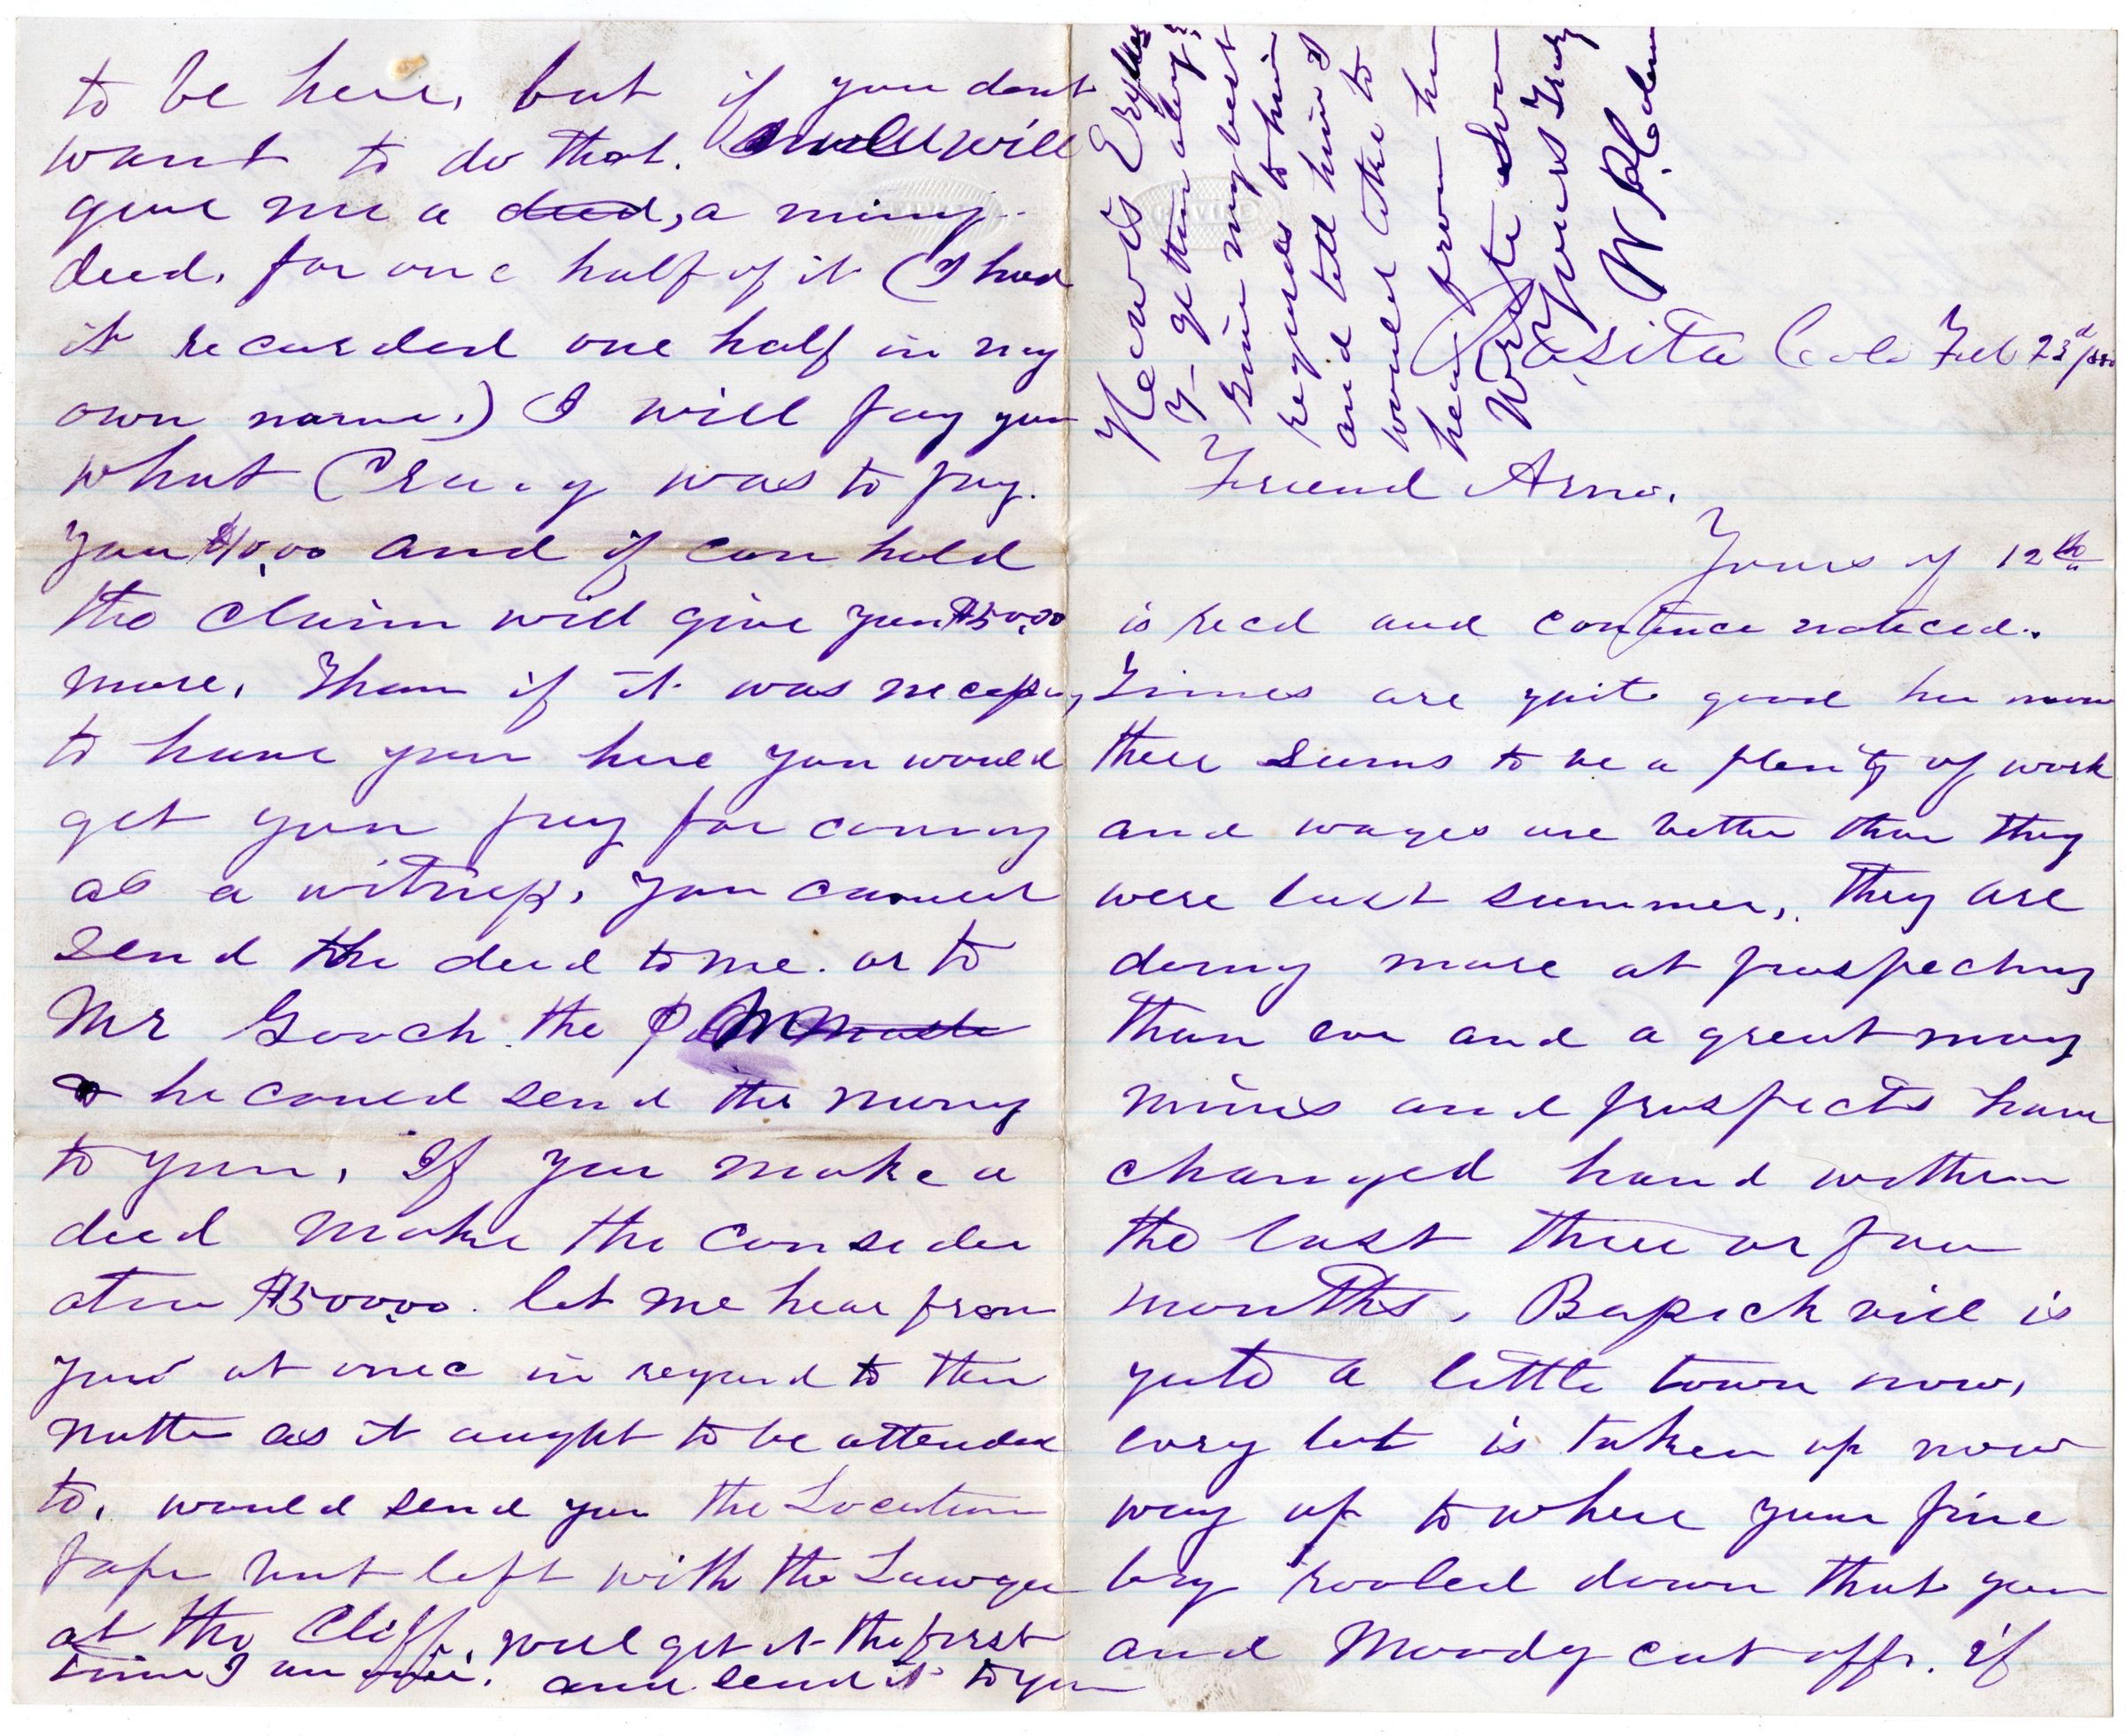 Rosita Colo Feb 23d
Friend Arno.
Yours of 12th
is recd and contence noticed.
Times are quite good her now
there seems to be a plenty of work
and wages are better than they
were last summer, They are
doing more at prospecting
than ever and a great many
mines and prospects have
changed hand within
the last three or four
months, Bassickville is
quite a little town now,
evry lot is taken up now
way up to where your fine
log rooled down that you
and Moody cut off. if
to be here, but if you dont
want to do that. will
give me a deed, a mining
deed, for one half of it (I had
it recorded one half in my
own name.) I will pay you
what was to pay.
you $10.00 and if can hold
the claim will give you $50.00
more, Then if it was necessary
to have you here you would
get your pay for coming
as a witness, you can
send the deed to me. or to
Mr Gooch. the
he could send the money
to you, If you make a
deed make the consider
ation $500.00. let me hear from
you at once in regard to this
matter as it aught to be attended
to, would send you the Location
paper but left with the Lawyer
at the Cliff, will get it the first
time I am and send it to you
How is
getting along?
Give my best
regards to him
and tell him I
would like to
hear from him
Write Soon
Yours Truly
W